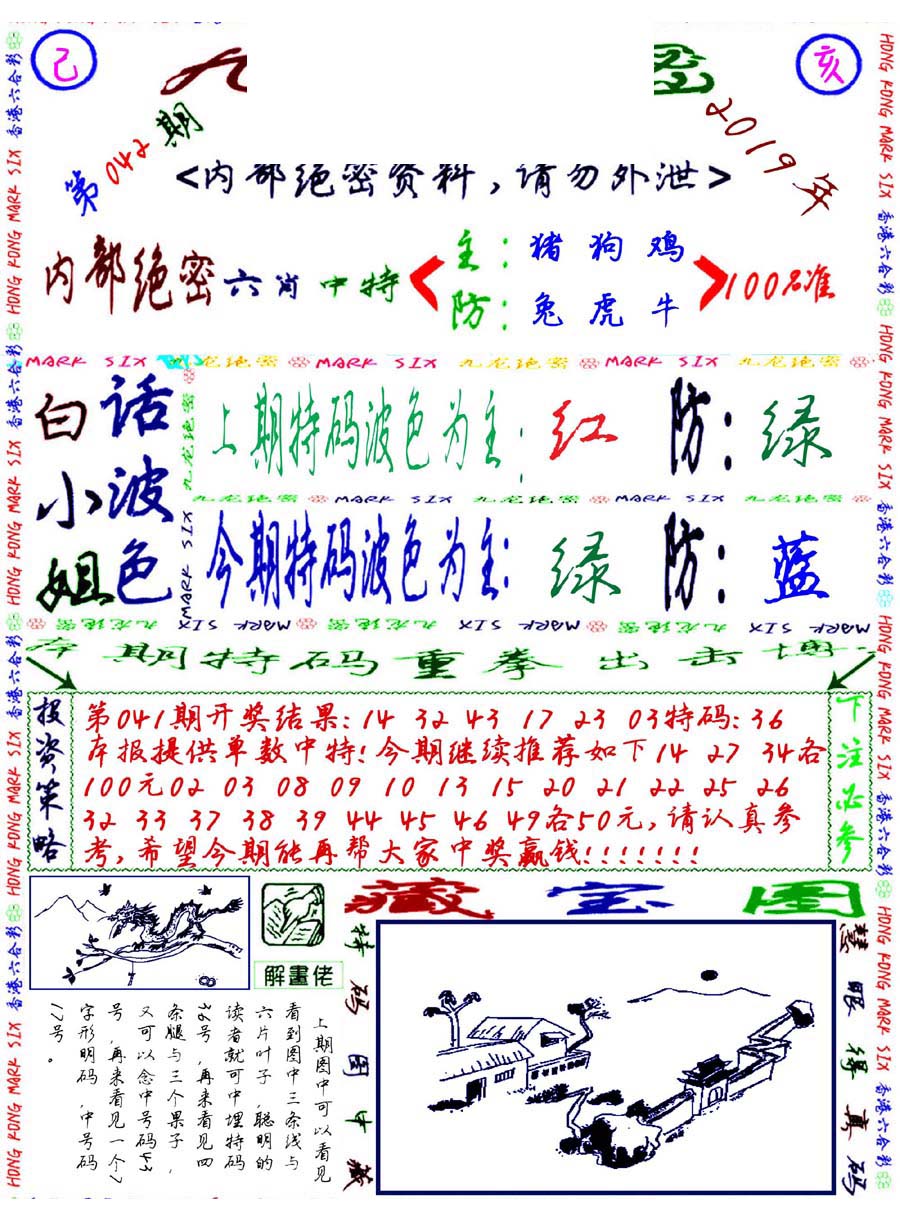 己
亥
第042期
2019年
<内部绝密资料,请勿外泄>
内部绝密六肖中特
主:猪 狗 鸡
防:兔 虎 牛
100%准
MARK SIX 九龙绝密 MARK SIX 九龙绝密 MARK SIX 九龙绝密
白小姐
话波色
上期特码波色为主:红 防:绿
九龙绝密 MARK SIX 九龙绝密 MARK SIX 九龙绝密
今期特码波色为主:绿 防:蓝
九龙绝密
MARK SIX
MARK SIX 九龙绝密 MARK SIX 九龙绝密 MARK SIX 九龙绝密
本期特码重拳出击
投资策略
第041期开奖结果:14 32 43 17 23 03特码:36
本报提供单数中特!今期继续推荐如下14 27 34各
100元02 03 08 09 10 13 15 20 21 22 25 26
32 33 37 38 39 44 45 46 49各50元,请认真参
考,希望今期能再帮大家中奖赢钱!!!!!!!
下注必参
藏宝图
解畫佬
上期图中可以看见
看到图中三条线与
六片叶子,聪明的
读者就可中埋特码
36号,再来看见四
条腿与三个果子,
又可以念中号码43
号,再来看见一个7
字形明码,中号码
17号。
特码图中藏
慧眼得真码
HONG KONG MARK SIX 香港六合彩
HONG KONG MARK SIX 香港六合彩